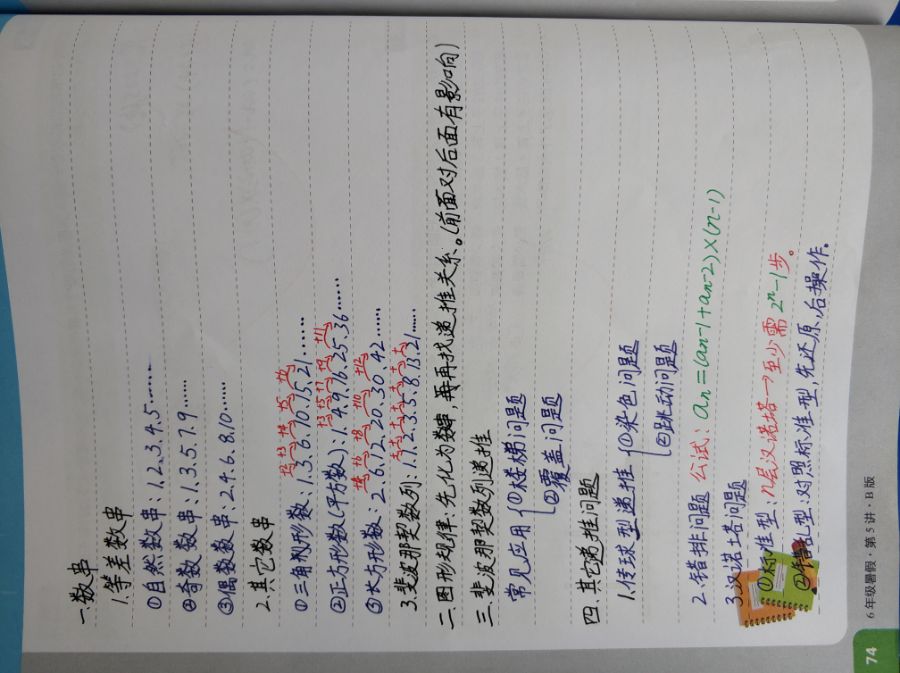 一.数串
1.等差数串
①自然数串:1.2.3.4.5……
②奇数数串:1.3.5.7.9……
③偶数数串:2.4.6.8.10……
2.其它数串
+2 +3 +4 +5 +6
①三角形形数:1.3.6.10.15.21……
+3 +5 +7 +9 +11
②正方形数(平方数):1.4.9.16.25.36……
+4 +6 +8 +10 +12
③长方形数:2.6.12.20.30.42……
3.斐波那契数列:1.1.2.3.5.8.13.21……
二.图形规律:先化为数串,再找递推关系。(前面对后面有影响)
三.斐波那契数列递推
常见应用{①楼梯问题
②覆盖问题
四.其它递推问题
1.传球型递推{①染色问题
②跳动问题
2.错排问题 公试:an=(an-1+an-2)×(n-1)
3.汉诺塔问题
①标准型:n层汉诺塔→至少需2ⁿ-1步。
②错乱型:对照标准型,先还原,后操作。
74
6年级暑假·第5讲·B版